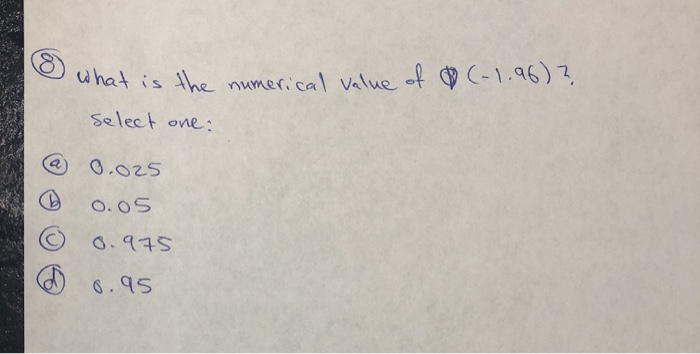 ⑧ what is the numerical value of Φ(-1.96)?
Select one:
ⓐ 0.025
ⓑ 0.05
ⓒ 0.975
ⓓ 0.95